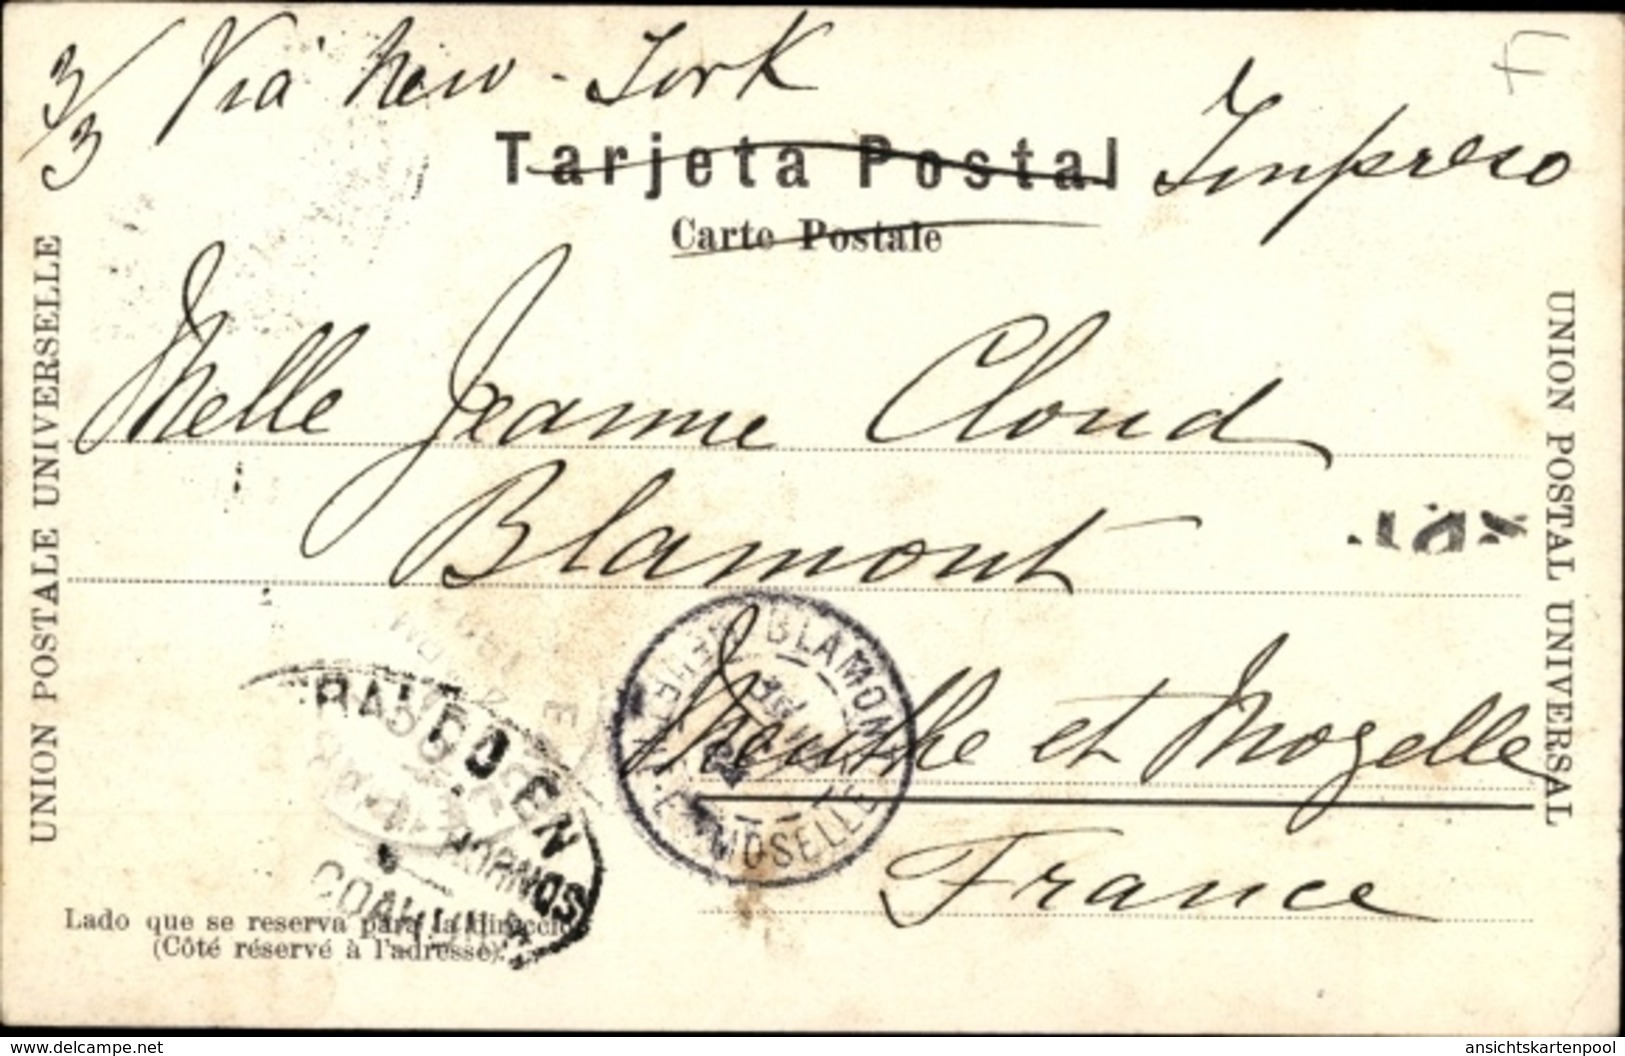 3/3 Via New-York
Impreso
Tarjeta Postal
Carte Postale
UNION POSTALE UNIVERSELLE
UNION POSTAL UNIVERSAL
Melle Jeanne Cloud
Blamont
Meurthe et Mozelle
France
BLAMONT
MEURTHE-ET-MOSELLE
COAHUILA
Lado que se reserva para la dirección
(Côté réservé à l'adresse).
www.delcampe.net
ansichtskartenpool